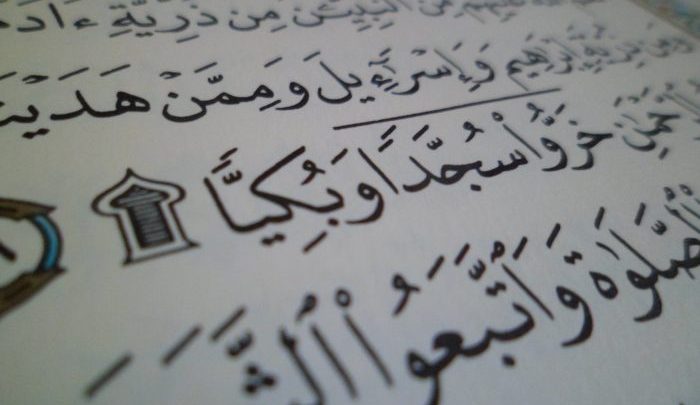 مِّنَ ٱلنَّبِيِّـۧنَ مِن ذُرِّيَّةِ ءَادَ
وَمِن ذُرِّيَّةِ إِبْرَٰهِيمَ وَإِسْرَٰٓءِيلَ وَمِمَّنْ هَدَيْنَ
ٱلرَّحْمَٰنِ خَرُّوا۟ سُجَّدًا وَبُكِيًّا ۩
ٱلصَّلَوٰةَ وَٱتَّبَعُوا۟ ٱلشَّ